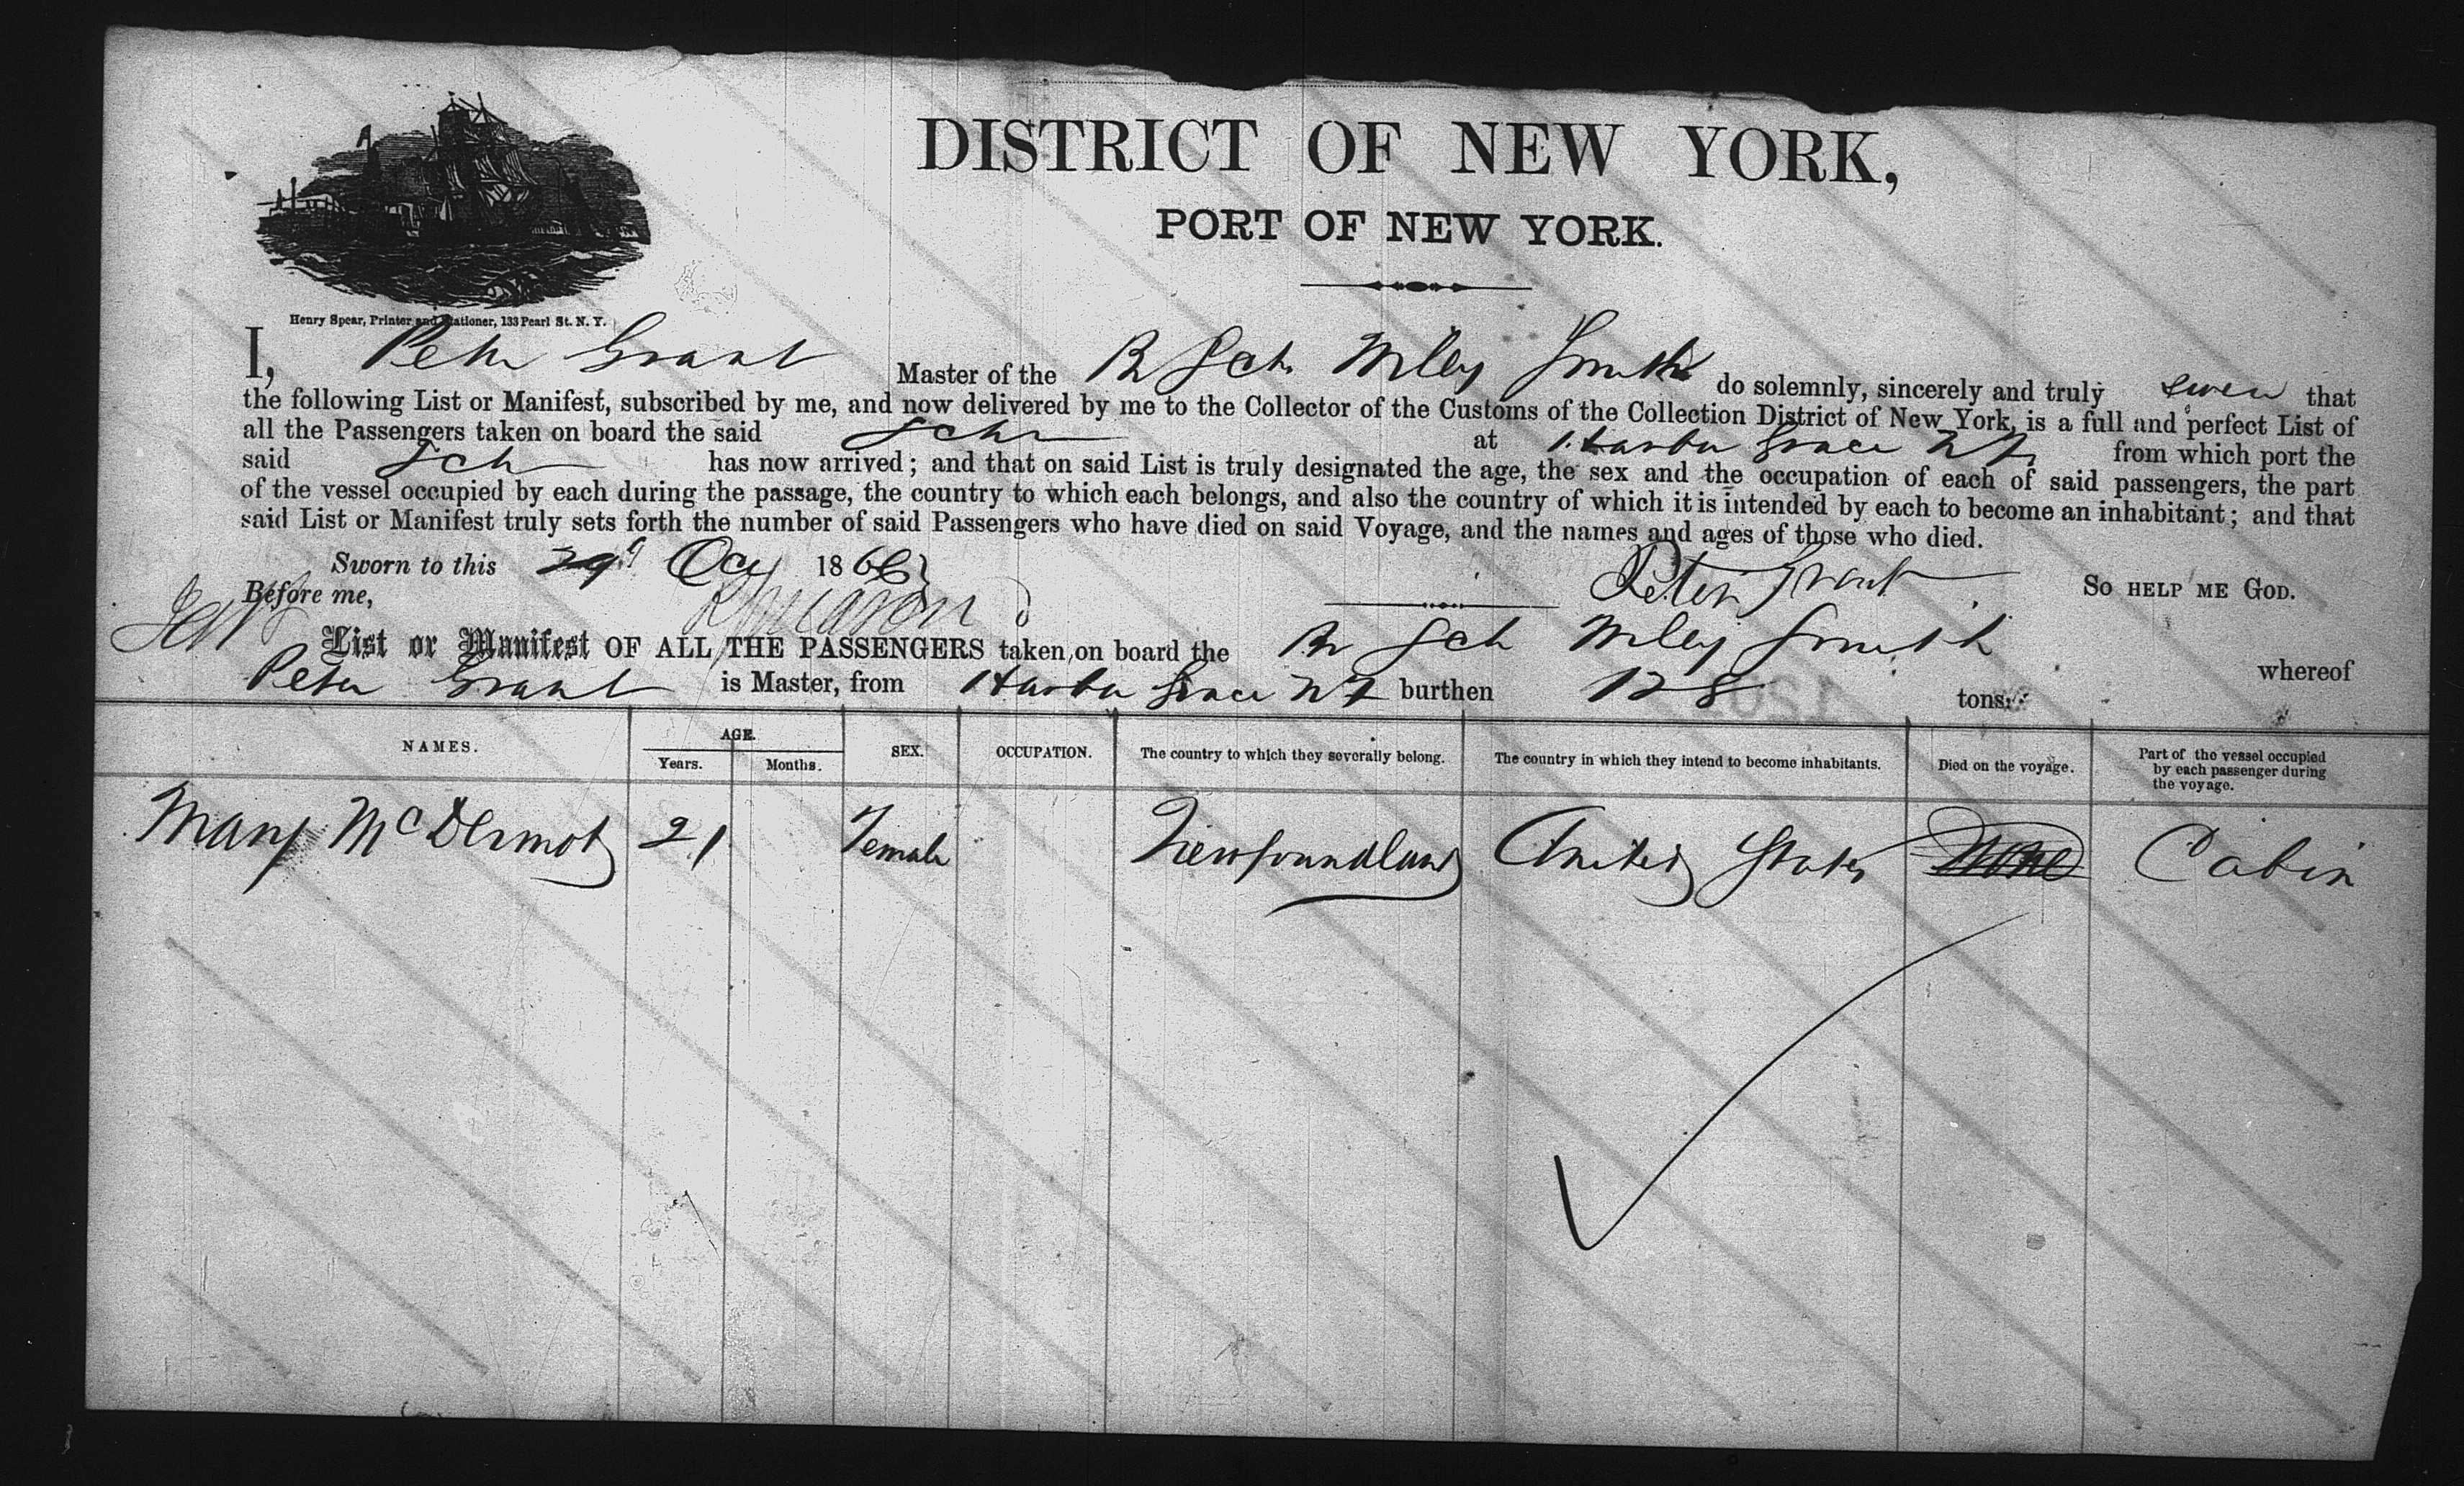 DISTRICT OF NEW YORK,
PORT OF NEW YORK.
Henry Spear, Printer and Stationer, 133 Pearl St. N. Y.
I, Peter Grant Master of the Br Sch Wiley Smith do solemnly, sincerely and truly swear that
the following List or Manifest, subscribed by me, and now delivered by me to the Collector of the Customs of the Collection District of New York, is a full and perfect List of
all the Passengers taken on board the said Schr at Harbor Grace NF from which port the
said Sch has now arrived; and that on said List is truly designated the age, the sex and the occupation of each of said passengers, the part
of the vessel occupied by each during the passage, the country to which each belongs, and also the country of which it is intended by each to become an inhabitant; and that
said List or Manifest truly sets forth the number of said Passengers who have died on said Voyage, and the names and ages of those who died.
Sworn to this 29 Oct 1866 Peter Grant SO HELP ME GOD.
Before me,
List or Manifest OF ALL THE PASSENGERS taken on board the Br Sch Wiley Smith whereof
Peter Grant is Master, from Harbor Grace NF burthen 128 tons.
NAMES. AGE. Years. Months. SEX. OCCUPATION. The country to which they severally belong. The country in which they intend to become inhabitants. Died on the voyage. Part of the vessel occupied by each passenger during the voyage.
Mary McDermot 21 Female Newfoundland United States None Cabin